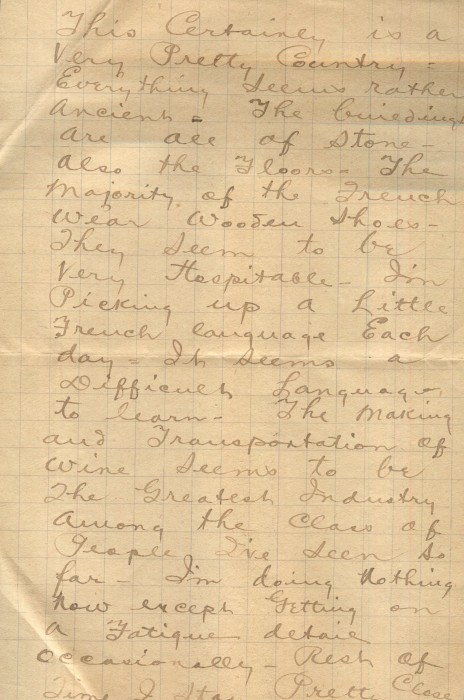 This Certainly is a
Very Pretty Country -
Everything Seems rather
Ancient - The buildings
are all of Stone -
Also the Floors - The
Majority of the French
Wear Wooden Shoes -
They Seem to be
Very Hospitable - I'm
Picking up a Little
French language Each
day - It Seems a
Difficult Language
to learn - The Making
and Transportation of
Wine Seems to be
The Greatest Industry
Among the Class of
People I've Seen So
far - I'm doing Nothing
Now except Getting on
a Fatigue detail
occasionally - Rest of
Time I Stay Pretty Close